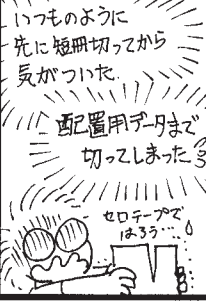 いつものように
先に短冊切ってから
気がついた
配置用データまで
切ってしまった
セロテープで
はろう…